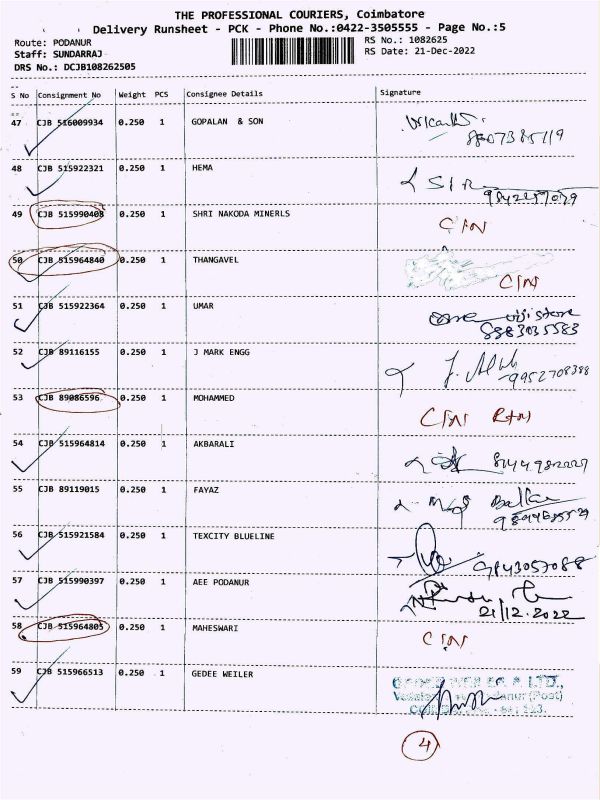 THE PROFESSIONAL COURIERS, Coimbatore
Delivery Runsheet - PCK - Phone No.:0422-3505555 - Page No.:5
Route: PODANUR RS No.: 1082625
Staff: SUNDARRAJ RS Date: 21-Dec-2022
DRS No.: DCJB108262505
S No Consignment No Weight PCS Consignee Details Signature
47 CJB 516009934 0.250 1 GOPALAN & SON
8807385119
48 CJB 515922321 0.250 1 HEMA
49 CJB 515990408 0.250 1 SHRI NAKODA MINERLS
C/N
50 CJB 515964840 0.250 1 THANGAVEL
C/N
51 CJB 515922364 0.250 1 UMAR
8883035583
52 CJB 89116155 0.250 1 J MARK ENGG
9952708388
53 CJB 89086596 0.250 1 MOHAMMED
C/N RTN
54 CJB 515964814 0.250 1 AKBARALI
55 CJB 89119015 0.250 1 FAYAZ
56 CJB 515921584 0.250 1 TEXCITY BLUELINE
57 CJB 515990397 0.250 1 AEE PODANUR
21/12.2022
58 CJB 515964805 0.250 1 MAHESWARI
C/N
59 CJB 515966513 0.250 1 GEDEE WEILER
4